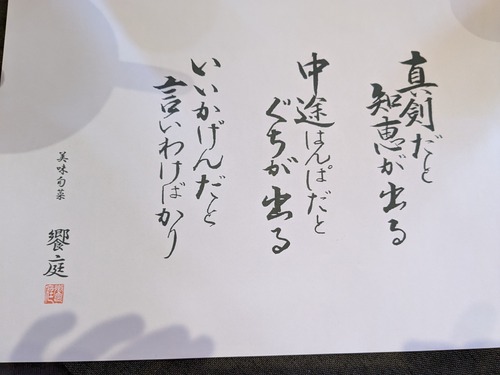 真剣だと
知恵が出る
中途はんぱだと
ぐちが出る
いいかげんだと
言いわけばかり
美味旬菜
饗庭